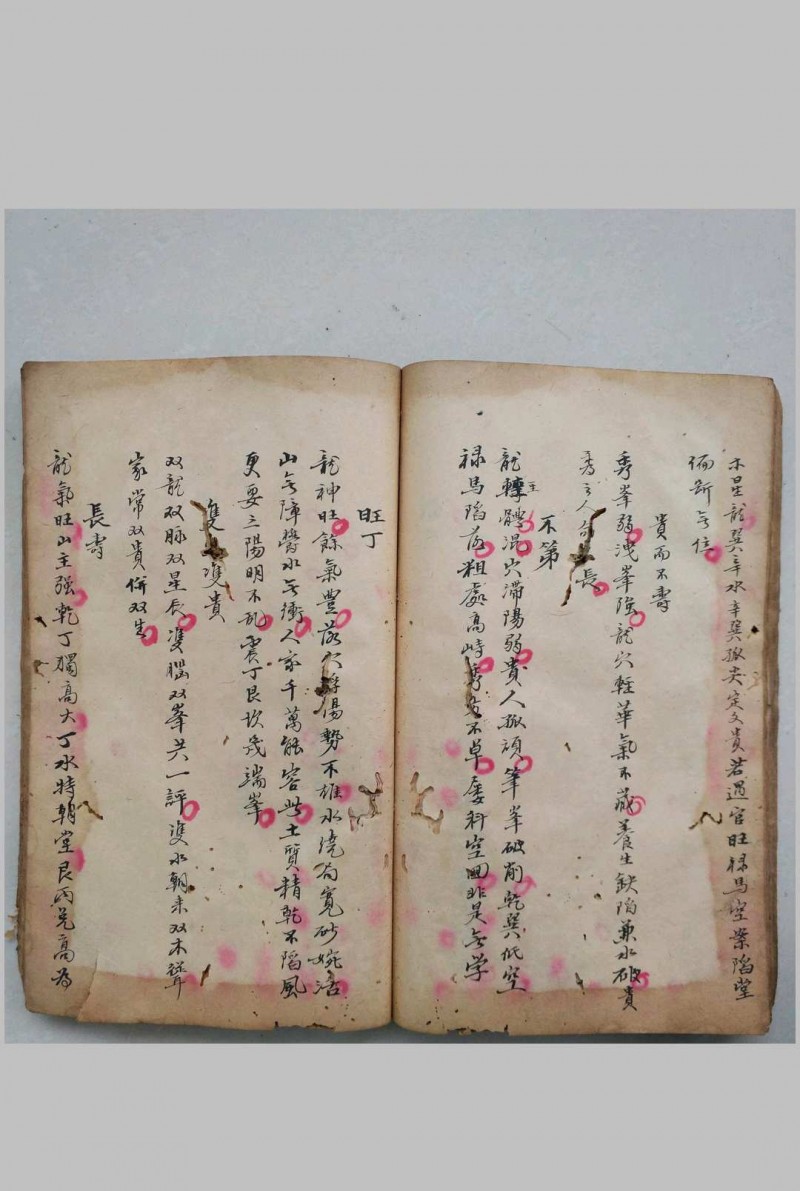 木星龍巽辛水辛巽孤尖定文貴若過官旺祿馬空案陷堂
偏斷无位
貴而不壽
秀峯弱洩峯強龍穴輕華氣不藏養生缺陷兼水破貴
秀之人命 長
不第
龍轉主體混穴滯陽弱貴人孤頑筆峯破削乾巽低空
祿馬陷 粗處高峙 不卓屡科空回非是无学
旺丁
龍神旺餘氣豐落穴 傷勢不雄水繞局寬砂婉活
山无障 水无衝人家千萬能容 土質精乾不陷風
更要三陽明不乱震丁艮坎幾端峯
雙 雙貴
双龍双脉双星辰雙腦双峯共一評雙水朝来双木聳
家常双貴併双生
長壽
龍氣旺山主强乾丁獨高大丁水特朝堂艮丙兑高為